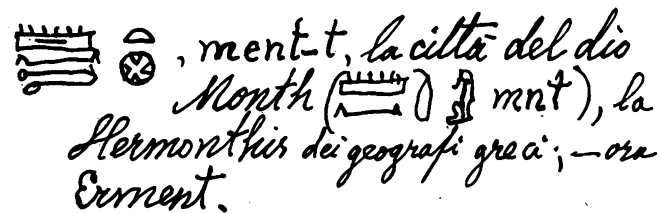 , ment-t, la città del dio
Month ( mnt ), la
Hermonthis dei geografi greci; — ora
Erment.